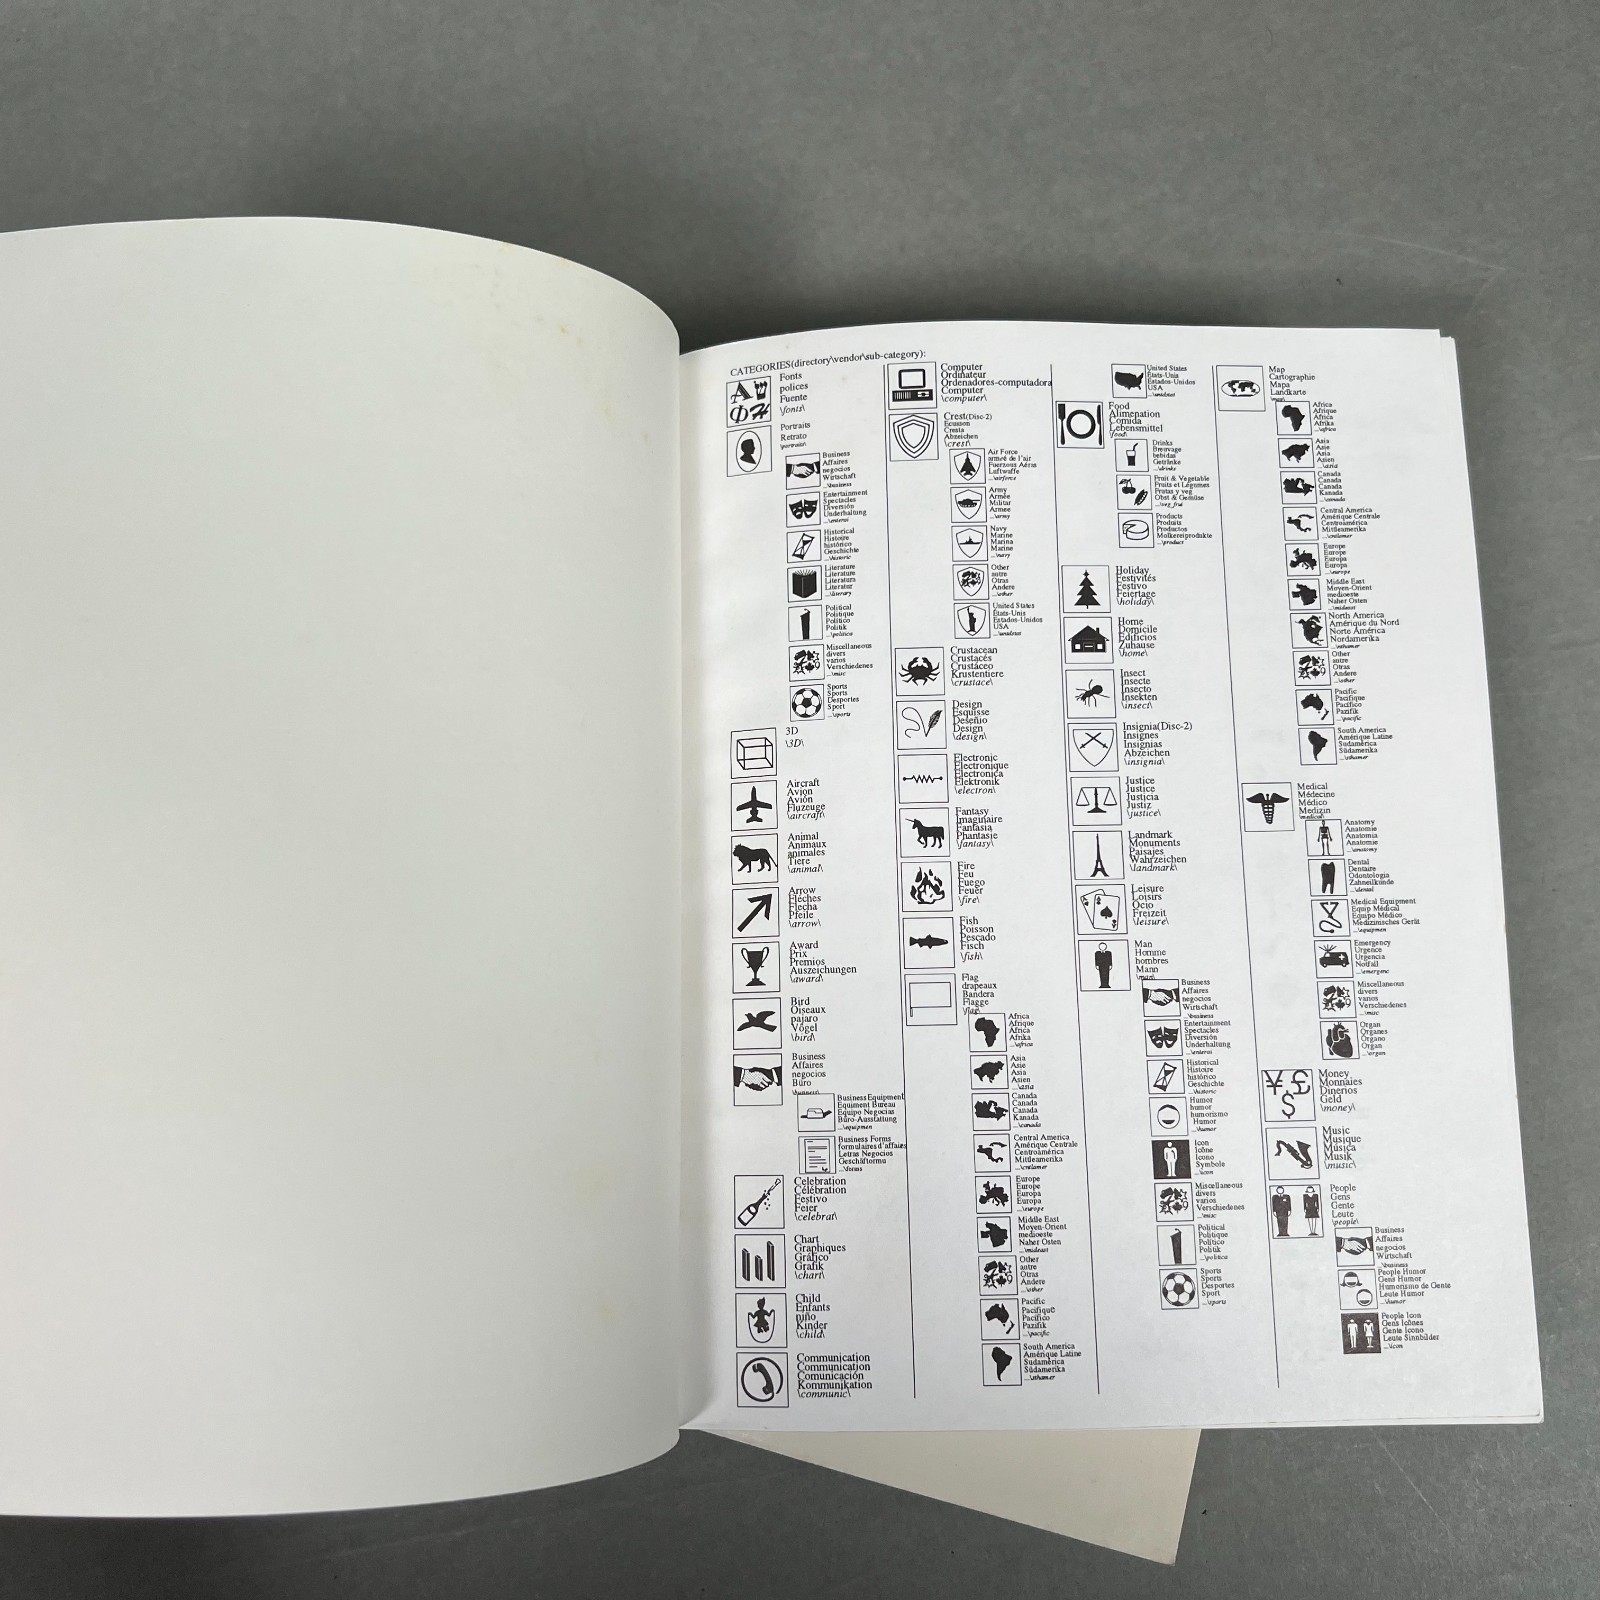 CATEGORIES(directory\vendor\sub-category):
Fonts
polices
Fuente
\fonts\
Portraits
Retrato
\portraits\
Business
Affaires
negocios
Wirtschaft
...\business
Entertainment
Spectacles
Diversión
Underhaltung
...\entertai
Historical
Histoire
histórico
Geschichte
...\historic
Literature
Literature
Literatura
Literatur
...\literary
Political
Politique
Político
Politik
...\politica
Miscellaneous
divers
varios
Verschiedenes
...\misc
Sports
Sports
Desportes
Sport
...\sports
3D
\3D\
Aircraft
Avion
Avión
Fluzeuge
\aircraft\
Animal
Animaux
animales
Tiere
\animal\
Arrow
Fléches
Flecha
Pfeile
\arrow\
Award
Prix
Premios
Auszeichungen
\award\
Bird
Oiseaux
pajaro
Vögel
\bird\
Business
Affaires
negocios
Büro
\business\
Business Equipment
Equiment Bureau
Equipo Negocias
Büro-Ausstattung
...\equipmen
Business Forms
formulaires d'affaires
Letras Negocios
Geschäftormu
...\forms
Celebration
Célébration
Festivo
Feier
\celebrat\
Chart
Graphiques
Gráfico
Grafik
\chart\
Child
Enfants
niño
Kinder
\child\
Communication
Communication
Comunicación
Kommunikation
\communic\
Computer
Ordinateur
Ordenadores-computadora
Computer
\computer\
Crest(Disc-2)
Ecusson
Cresta
Abzeichen
\crest\
Air Force
armée de l'air
Fuerzous Aéras
Luftwaffe
...\airforce
Army
Armée
Militar
Armee
...\army
Navy
Marine
Marina
Marine
...\navy
Other
autre
Otras
Andere
...\other
United States
États-Unis
Estados-Unidos
USA
...\unidstat
Crustacean
Crustacés
Crustáceo
Krustentiere
\crustace\
Design
Esquisse
Deseñio
Design
\design\
Electronic
Electronique
Electronica
Elektronik
\electron\
Fantasy
Imaginaire
Fantasía
Phantasie
\fantasy\
Fire
Feu
Fuego
Feuer
\fire\
Fish
Poisson
Pescado
Fisch
\fish\
Flag
drapeaux
Bandera
Flagge
\flag\
Africa
Afrique
Africa
Afrika
...\africa
Asia
Asie
Asia
Asien
...\asia
Canada
Canada
Canada
Kanada
...\canada
Central America
Amérique Centrale
Centroamérica
Mittleamerika
...\cntlamer
Europe
Europe
Europa
Europa
...\europe
Middle East
Moyen-Orient
medioeste
Naher Osten
...\mideast
Other
autre
Otras
Andere
...\other
Pacific
Pacifique
Pacífico
Pazifik
...\pacific
South America
Amérique Latine
Sudamérica
Südamerika
...\sthamer
United States
États-Unis
Estados-Unidos
USA
...\unidstat
Food
Alimenation
Comida
Lebensmittel
\food\
Drinks
Breuvage
bebidas
Getränke
...\drinks
Fruit & Vegetable
Fruits et Légumes
Frutas y veg
Obst & Gemüse
...\veg_frui
Products
Produits
Productos
Molkereiprodakte
...\product
Holiday
Festivités
Festivo
Feiertage
\holiday\
Home
Domicile
Edificios
Zuhause
\home\
Insect
Insecte
Insecto
Insekten
\insect\
Insignia(Disc-2)
Insignes
Insignias
Abzeichen
\insignia\
Justice
Justice
Justicia
Justiz
\justice\
Landmark
Monuments
Paisajes
Wahrzeichen
\landmark\
Leisure
Loisirs
Ocio
Freizeit
\leisure\
Man
Homme
hombres
Mann
\man\
Business
Affaires
negocios
Wirtschaft
...\business
Entertainment
Spectacles
Diversión
Underhaltung
...\entertai
Historical
Histoire
histórico
Geschichte
...\historic
Humor
humor
humorismo
Humor
...\humor
Icon
Icône
Icono
Symbole
...\icon
Miscellaneous
divers
varios
Verschiedenes
...\misc
Political
Politique
Político
Politik
...\politica
Sports
Sports
Desportes
Sport
...\sports
Map
Cartographie
Mapa
Landkarte
\map\
Africa
Afrique
Africa
Afrika
...\africa
Asia
Asie
Asia
Asien
...\asia
Canada
Canada
Canada
Kanada
...\canada
Central America
Amérique Centrale
Centroamérica
Mittleamerika
...\cntlamer
Europe
Europe
Europa
Europa
...\europe
Middle East
Moyen-Orient
medioeste
Naher Osten
...\mideast
North America
Amérique du Nord
Norte América
Nordamerika
...\nthamer
Other
autre
Otras
Andere
...\other
Pacific
Pacifique
Pacífico
Pazifik
...\pacific
South America
Amérique Latine
Sudamérica
Südamerika
...\sthamer
Medical
Médecine
Médico
Medizin
\medical\
Anatomy
Anatomie
Anatomia
Anatomie
...\anatomy
Dental
Dentaire
Odontologia
Zahneilkünde
...\dental
Medical Equipment
Equip Médical
Equipo Médico
Medizinisches Gerät
...\equipmen
Emergency
Urgence
Urgencia
Notfall
...\emergenc
Miscellaneous
divers
varios
Verschiedenes
...\misc
Organ
Organes
Organo
Organ
...\organ
Money
Monnaies
Dinerios
Geld
\money\
Music
Musique
Música
Musik
\music\
People
Gens
Gente
Leute
\people\
Business
Affaires
negocios
Wirtschaft
...\business
People Humor
Gens Humor
Humorismo de Gente
Leute Humor
...\humor
People Icon
Gens Icônes
Gente Icono
Leute Sinnbilder
...\icon